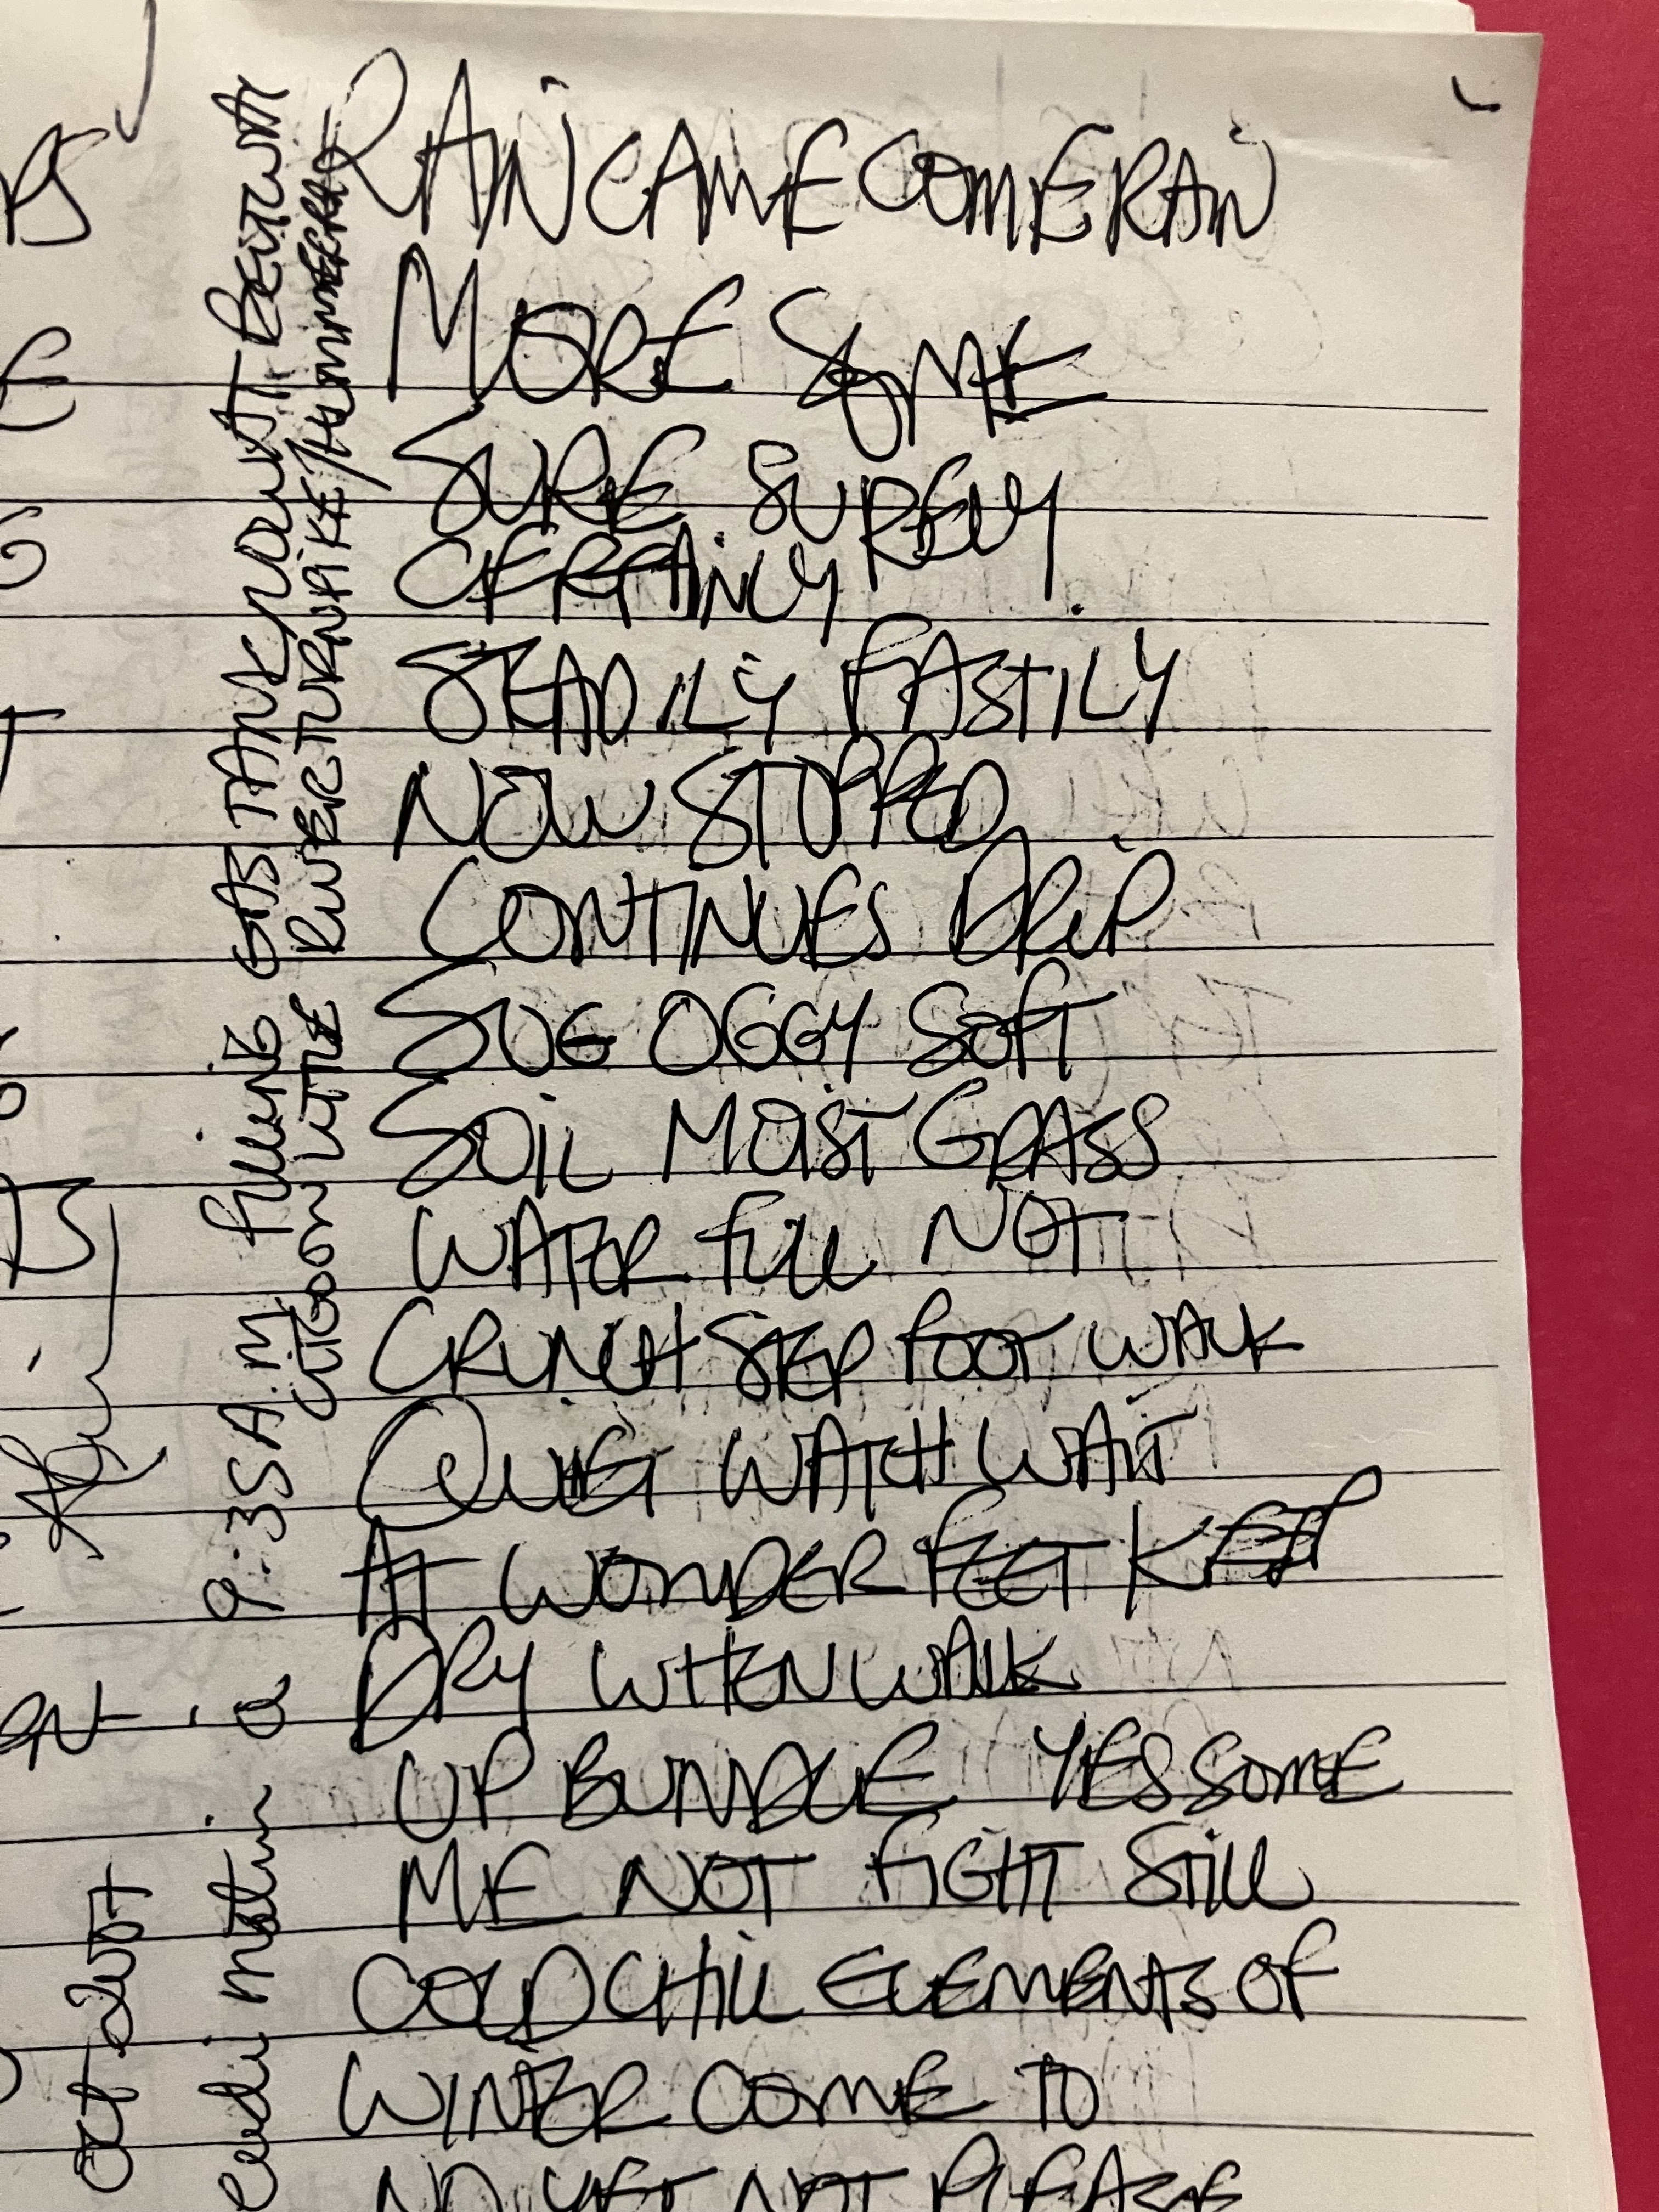 RAIN CAME COME RAIN
MORE SOME
SURE SURELY
CERTAINLY
STEADILY FASTILY
NOW STOPPED
CONTINUES DRIP
SOG OGGY SOFT
SOIL MOIST GRASS
WATER FULL NOT
CRUNCH STEP FOOT WALK
QUIET WATCH WAIT
AT WONDER FEET KEEP
DRY WHEN WALK
UP BUNDLE YES SOME
ME NOT FIGHT STILL
COLD CHILL ELEMENTS OF
WINTER COME TO
NO YET NOT PLEASE
9:35 A.M. FILLING GAS TANK ROUT BEITWITH
LITTLE RIVER TURNPIKE /